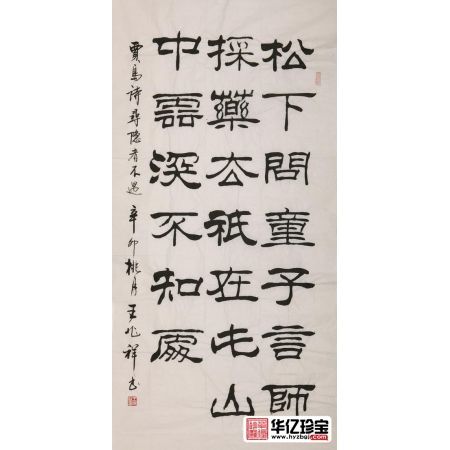 松下問童子言師
採藥去祇在此山
中雲深不知處
賈島詩尋隱者不遇 辛卯桃月 王兆祥书
华亿珍宝
www.hyzbgj.com